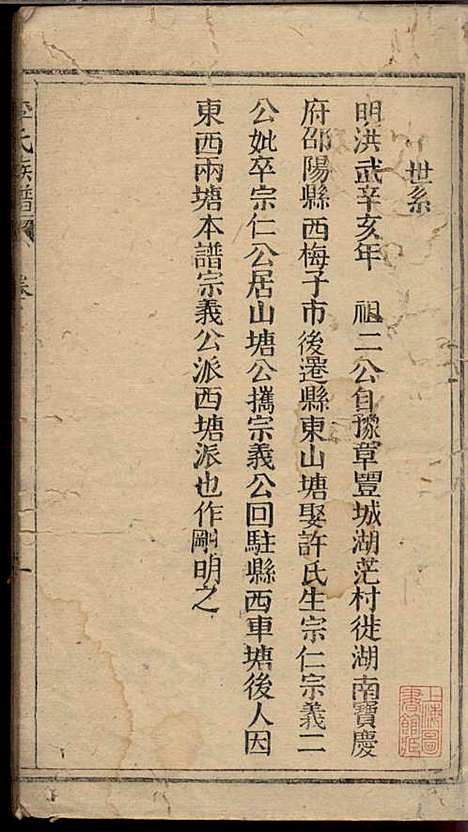 世系
明洪武辛亥年　祖二公自豫章豐城湖茫村徙湖南寶慶
府邵陽縣西梅子市後遷縣東山塘娶許氏生宗仁宗義二
公妣卒宗仁公居山塘公攜宗義公回駐縣西車塘後人因
東西兩塘本譜宗義公派西塘派也作剛明之
氏族譜
卷
上海圖書館藏